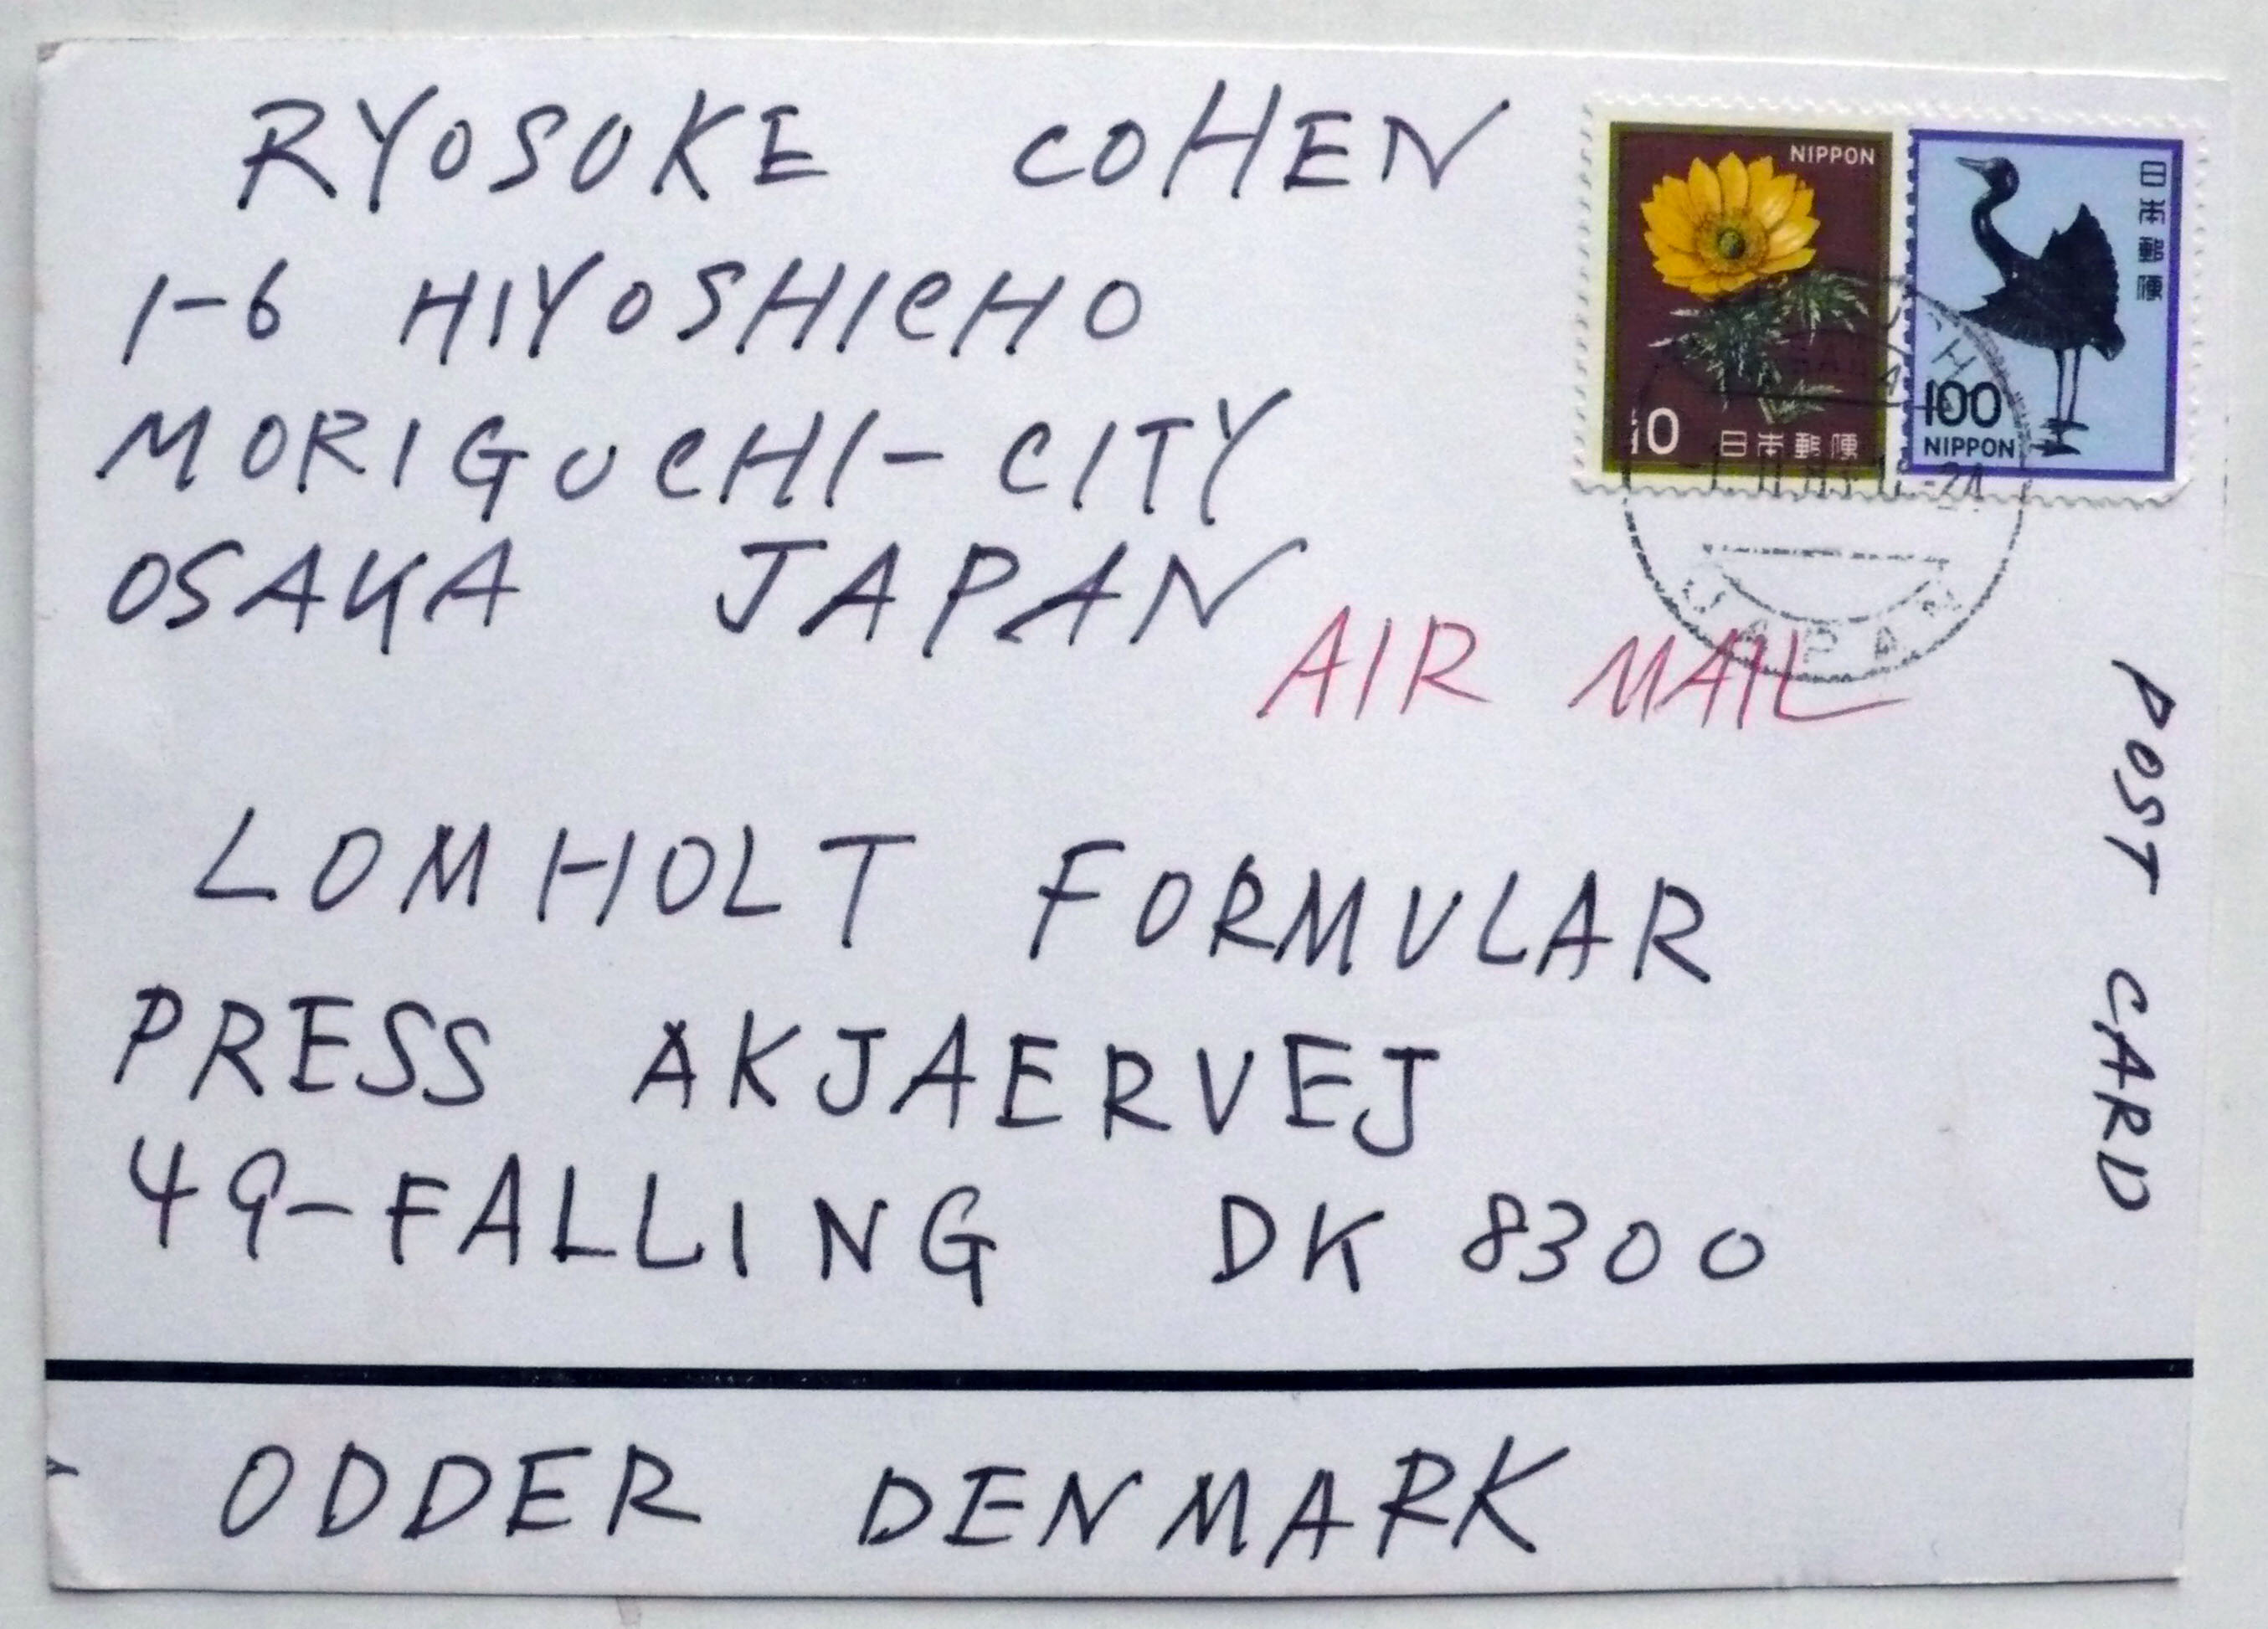 RYOSUKE COHEN
1-6 HIYOSHICHO
MORIGUCHI-CITY
OSAKA JAPAN
AIR MAIL
NIPPON
10 日本郵便
日本郵便
100
NIPPON
JAPAN
POST CARD
LOMHOLT FORMULAR
PRESS AKJAERVEJ
49-FALLING DK 8300
ODDER DENMARK